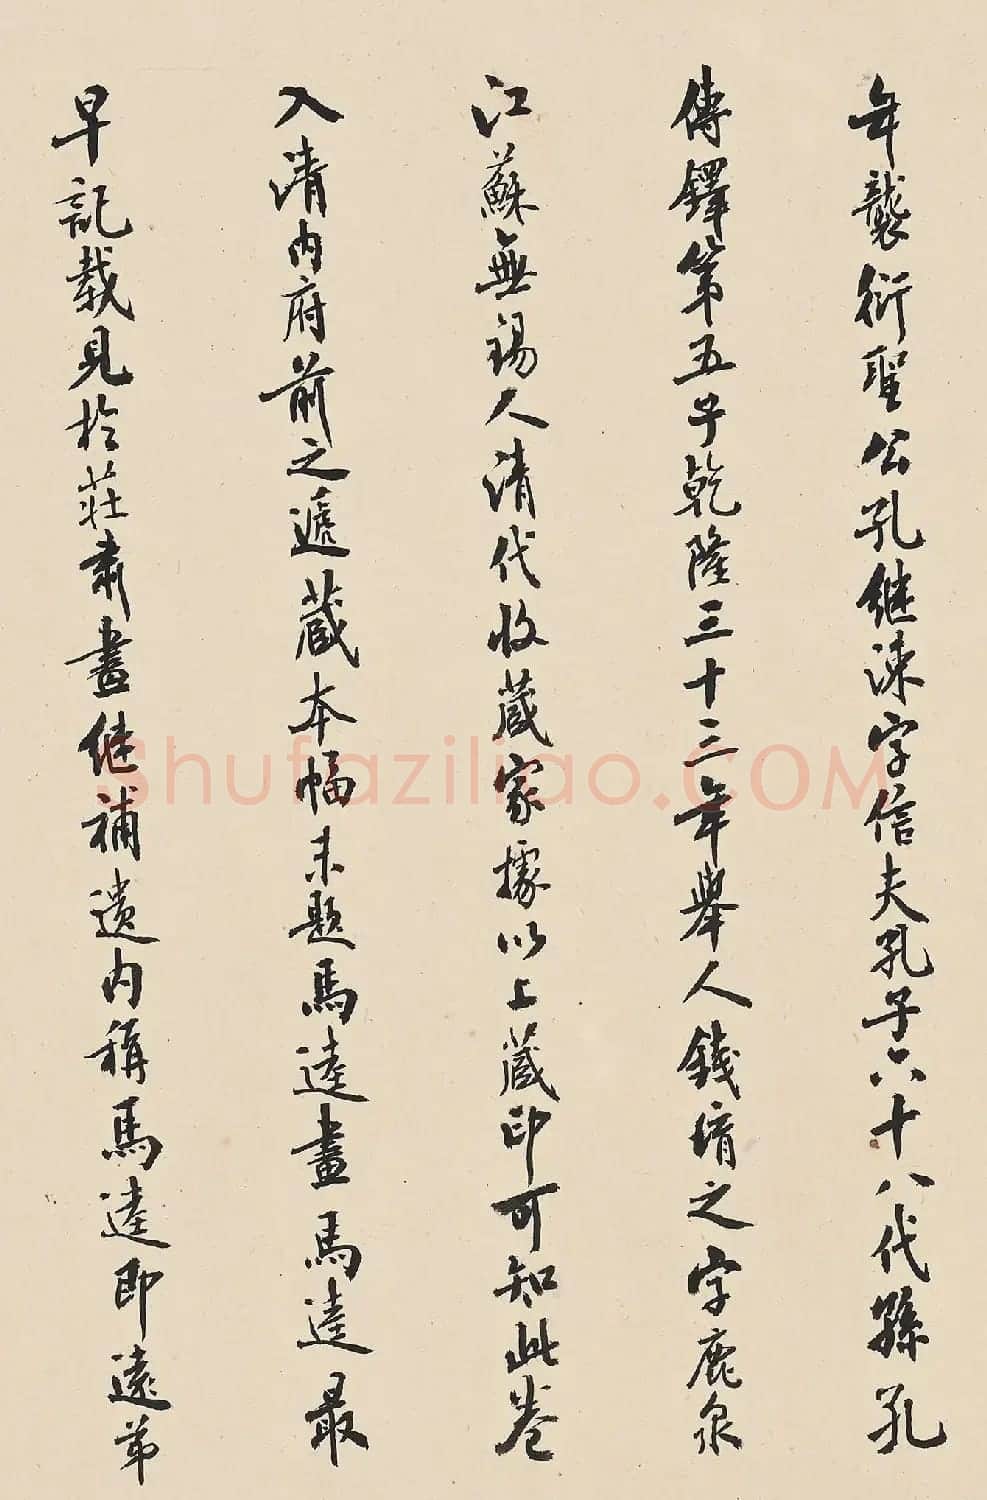 年襲衍聖公孔继涑字信夫孔子六十八代孫孔
傳鐸第五子乾隆三十三年舉人錢堉之字鹿泉
江蘇無錫人清代收藏家據以上藏印可知此卷
入清内府前之遞藏本幅未題馬逵畫馬逵最
早記載見於莊肅畫继補遺内稱馬逵即遠弟
Shufaziliao.COM